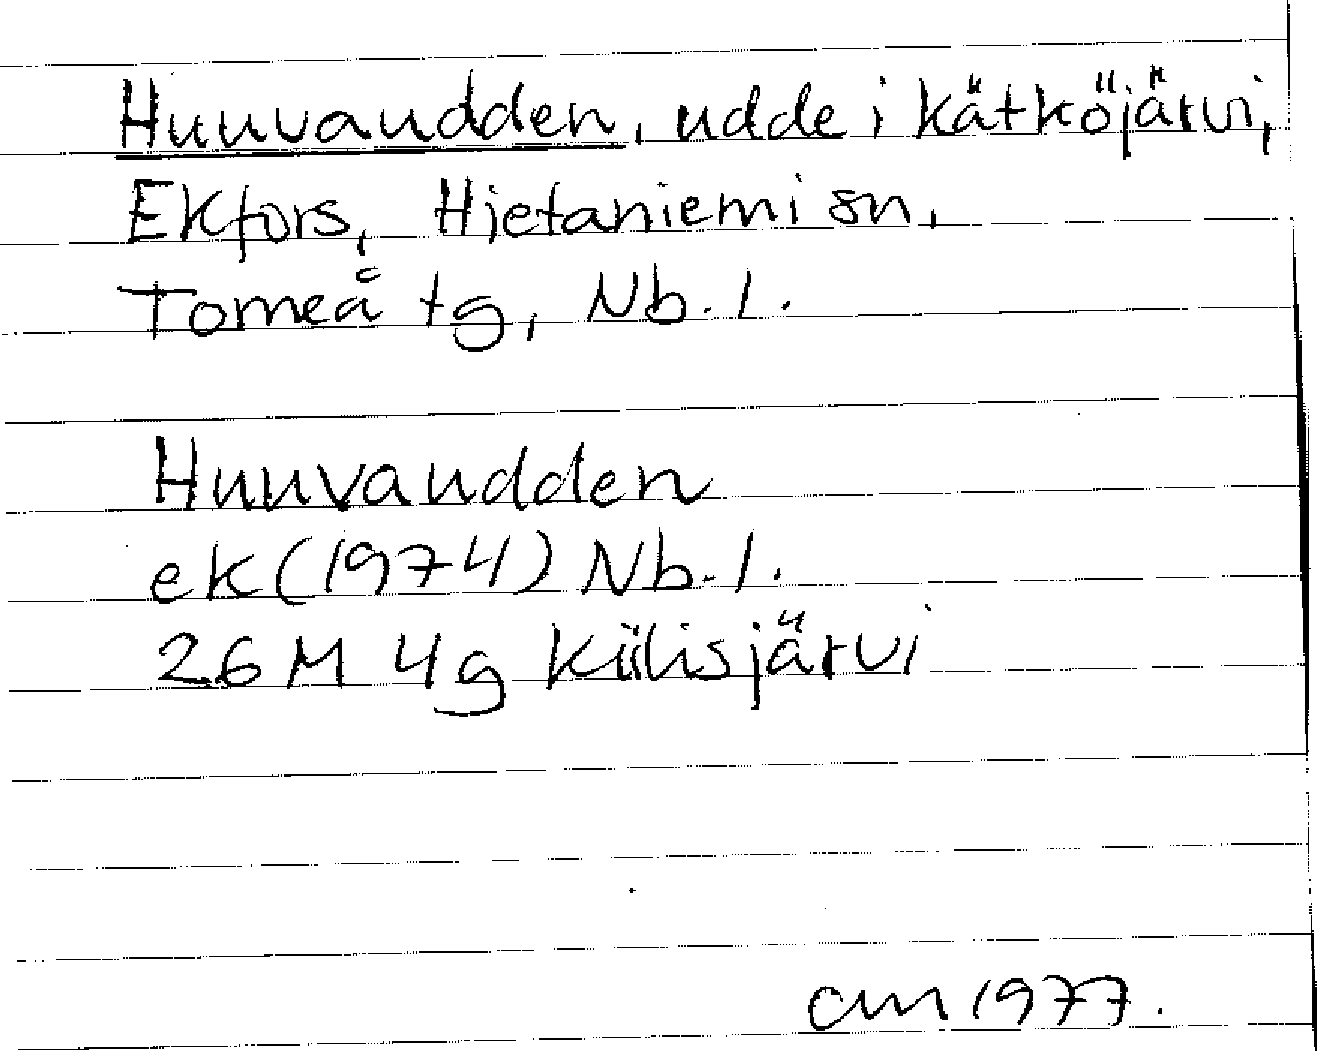 Huuvaudden, udde i Kätköjärvi,
Ekfors, Hietaniemi sn,
Torneå tg, Nb. l.
Huuvaudden
ek (1974) Nb. l.
26 M 4g Kiilisjärvi
am 1977.